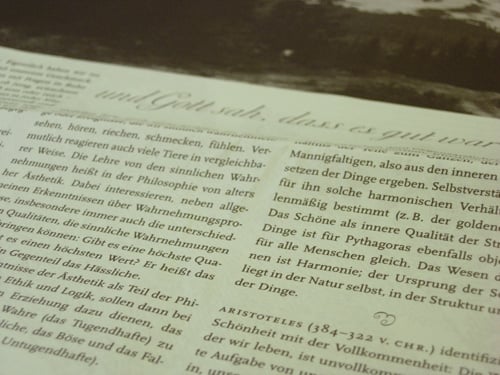 Eigentlich haben wir es
und Gott sah, dass es gut war
sehen, hören, riechen, schmecken, fühlen. Ver-
mutlich reagieren auch viele Tiere in vergleichba-
rer Weise. Die Lehre von den sinnlichen Wahr-
nehmungen heißt in der Philosophie von alters
her Ästhetik. Dabei interessieren, neben allge-
meinen Erkenntnissen über Wahrnehmungspro-
se, insbesondere immer auch die unterschied-
n Qualitäten, die sinnliche Wahrnehmungen
bringen können: Gibt es eine höchste Qua-
t es einen höchsten Wert? Er heißt das
in Gegenteil das Hässliche.
ntnisse der Ästhetik als Teil der Phi-
Ethik und Logik, sollen dann bei
n Erziehung dazu dienen, das
Wahre (das Tugendhafte) zu
liche, das Böse und das Fal-
Untugendhafte).
Mannigfaltigen, also aus den inneren
setzen der Dinge ergeben. Selbstverstä
für ihn solche harmonischen Verhäl
lenmäßig bestimmt (z. B. der goldene
Das Schöne als innere Qualität der Str
Dinge ist für Pythagoras ebenfalls obje
für alle Menschen gleich. Das Wesen d
nen ist Harmonie; der Ursprung der Sc
liegt in der Natur selbst, in der Struktur un
der Dinge.
ARISTOTELES (384–322 V. CHR.) identifizi
Schönheit mit der Vollkommenheit: Die
der wir leben, ist unvollkomm
te Aufgabe von u
in, unse